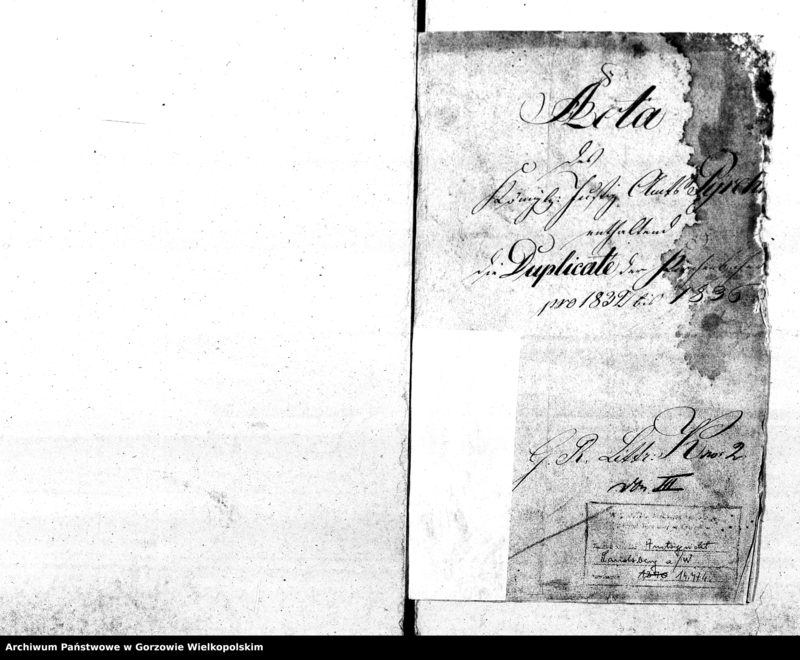 Acta
des
Königl: Justiz Amts Pyreh
enthaltend
die Duplicate der
pro 1832 bis 1836
G R. Littr: K no: 2
von III
Amtsgericht
Landsberg a/W
Archiwum Państwowe w Gorzowie Wielkopolskim